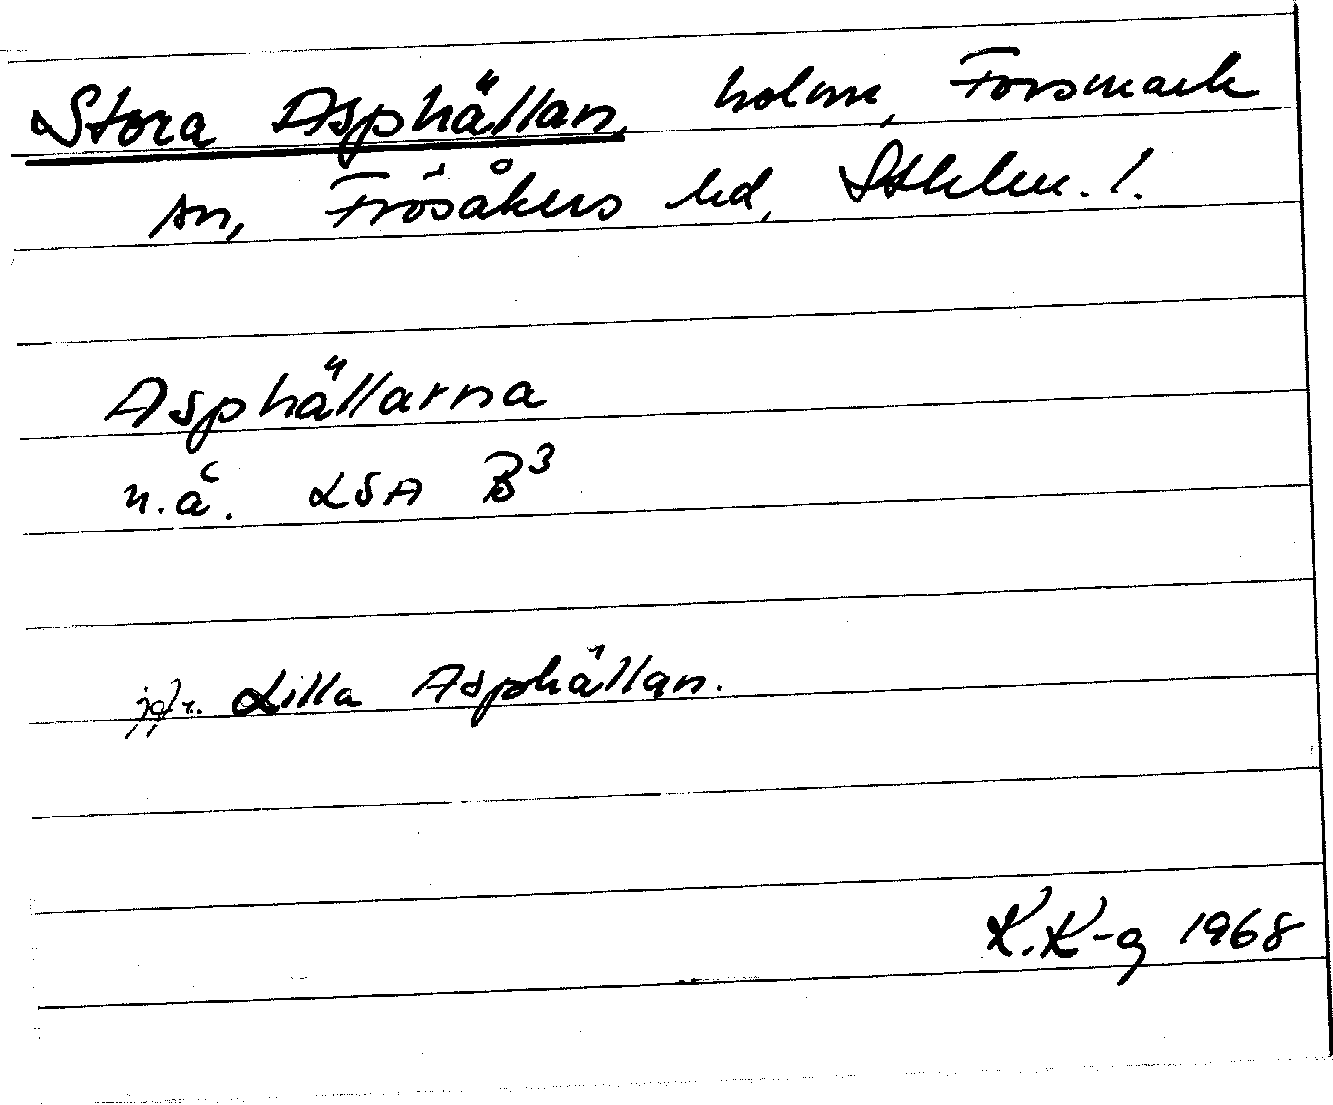 Stora Asphällan, holme, Forsmark
sn, Frösåkers hd, Sthlm. l.
Asphällarna
n.ä. LSA B³
jfr. Lilla Asphällan.
K. K-g 1968